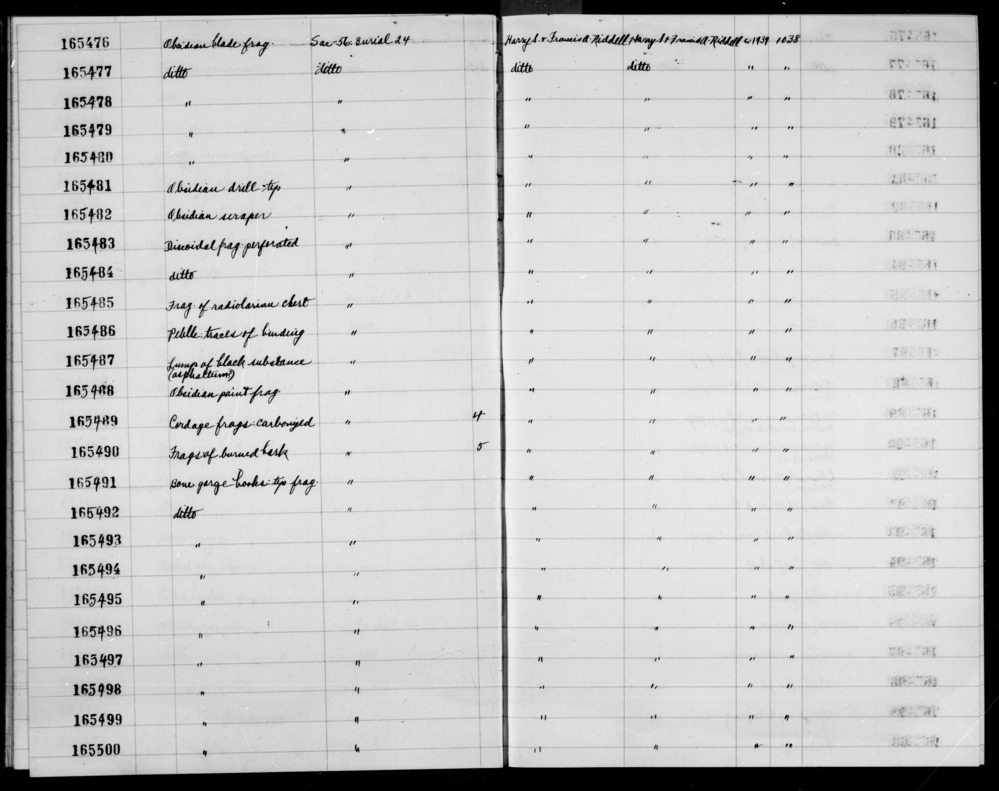 165476 Obsidian blade frag. Sac-56: Burial 24 Harry S. & Francis A. Riddell Harry S. & Francis A. Riddell c 1939 1038
165477 ditto ditto ditto ditto " "
165478 " " " " " "
165479 " " " " " "
165480 " " " " " "
165481 Obsidian drill: tip " " " " "
165482 Obsidian scraper " " " " "
165483 Discoidal frag. perforated " " " " "
165484 ditto " " " " "
165485 Frag. of radiolarian chert " " " " "
165486 Pebble: traces of binding " " " " "
165487 Lump of black substance " " " " "
(asphaltum?)
165488 Obsidian point frag. " " " " "
165489 Cordage frags: carbonized " 4 " " " "
165490 Frags of burned bark " 5 " " " "
165491 Bone gorge hooks: tip frag. " " " " "
165492 ditto " " " " "
165493 " " " " " "
165494 " " " " " "
165495 " " " " " "
165496 " " " " " "
165497 " " " " " "
165498 " " " " " "
165499 " " " " " "
165500 " " " " " "